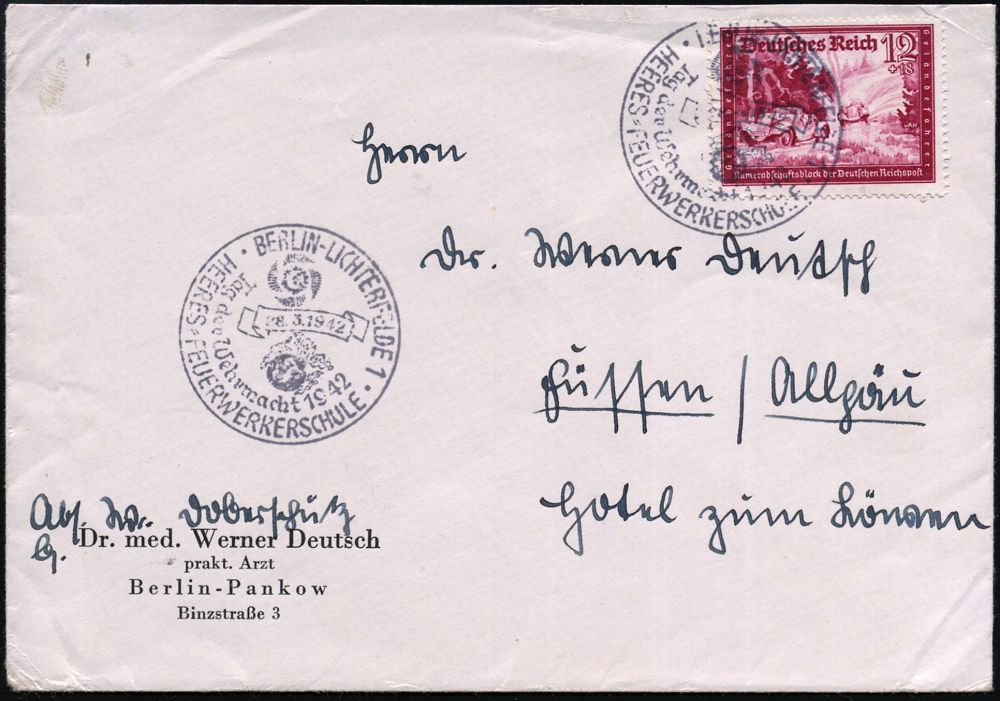 Deutsches Reich 12
+18
Kameradschaftsblock der Deutschen Reichspost
HEERES-FEUERWERKERSCHULE
Tag der Wehrmacht
Herrn
Dr. Werner Deutsch
Füssen / Allgäu
Hotel zum Löwen
· BERLIN-LICHTERFELDE 1 ·
28.3.1942
Tag der Wehrmacht 1942
HEERES-FEUERWERKERSCHULE
Abs. W. Doberschütz
b.
Dr. med. Werner Deutsch
prakt. Arzt
Berlin-Pankow
Binzstraße 3